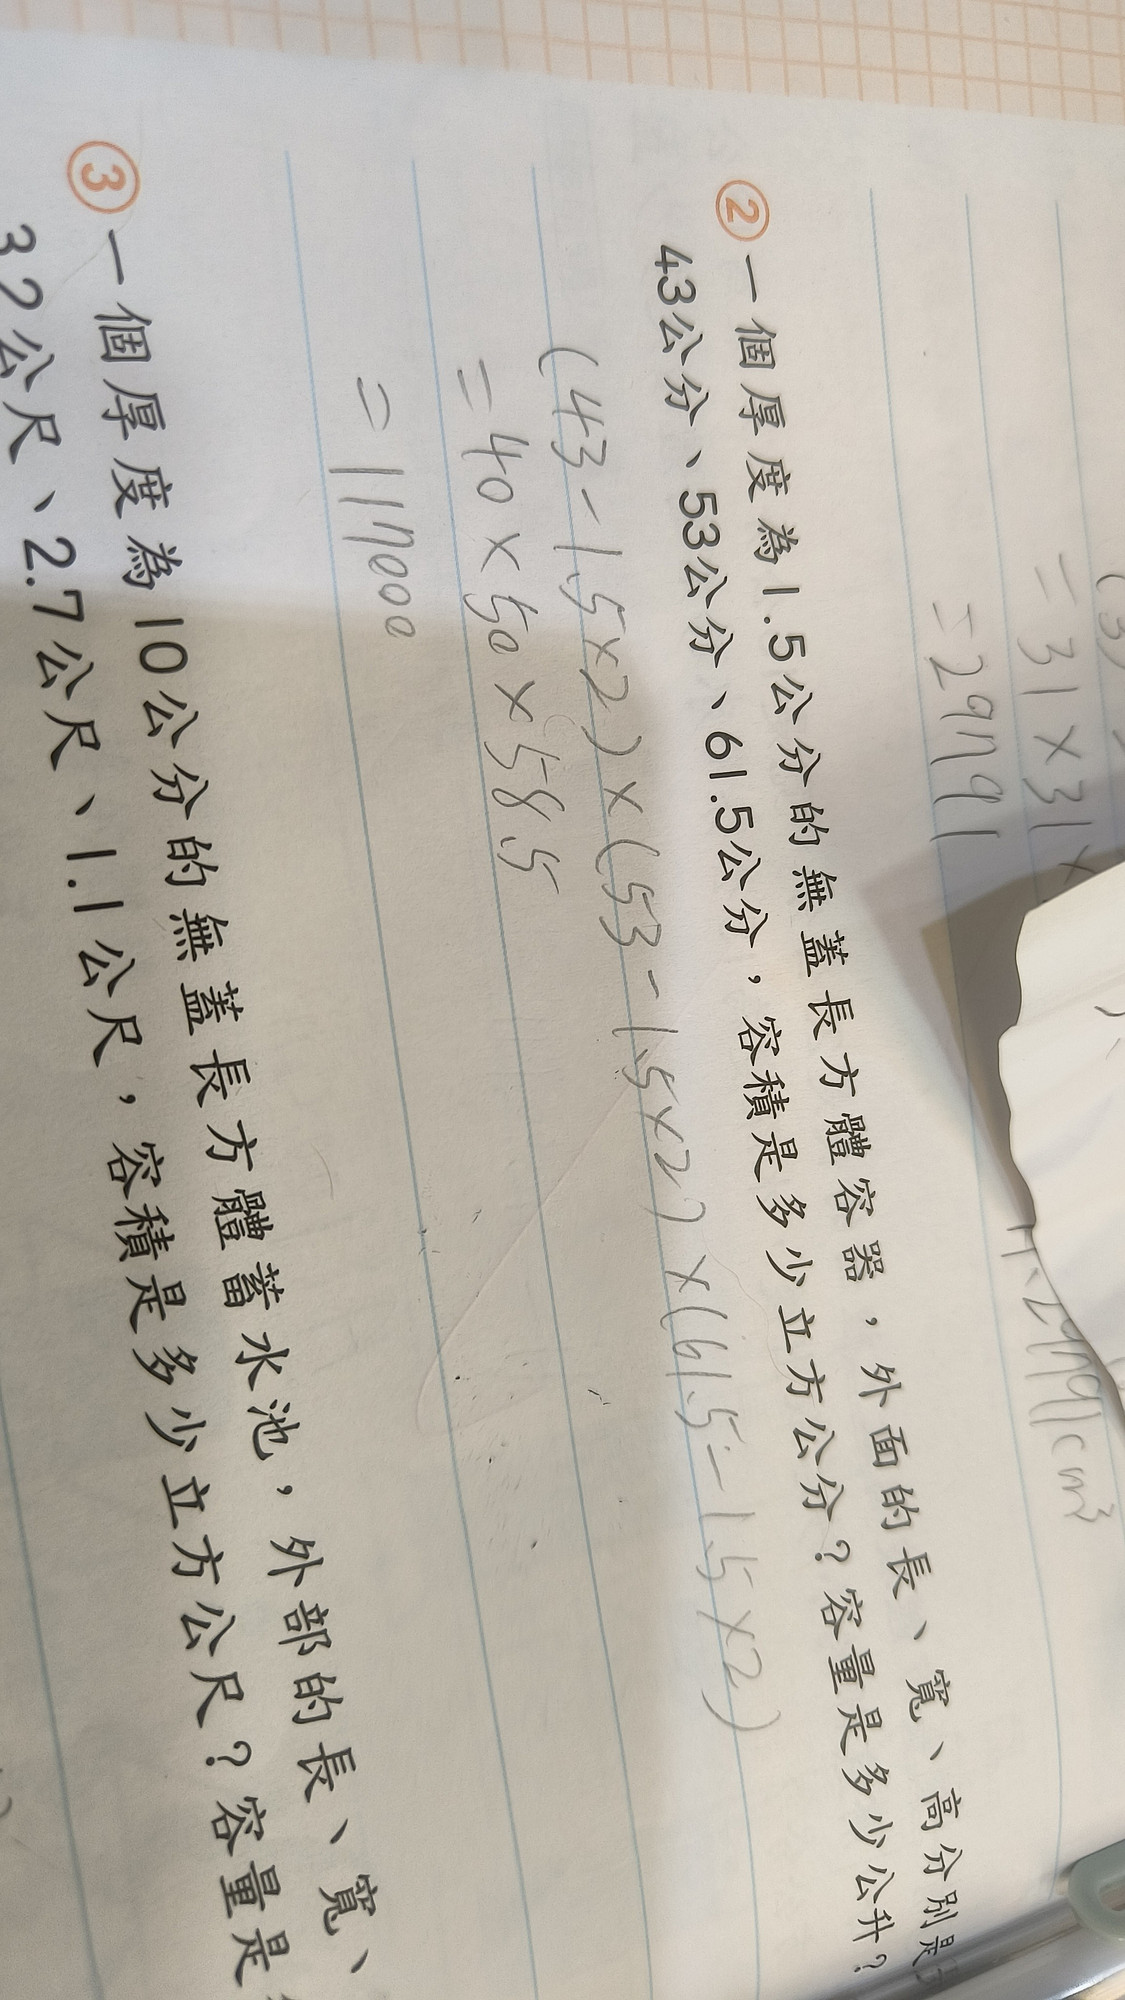 = 31 × 31 ×
= 29791
29791cm³
② 一個厚度為1.5公分的無蓋長方體容器，外面的長、寬、高分別是
43公分、53公分、61.5公分，容積是多少立方公分？容量是多少公升？
(43-1.5×2)×(53-1.5×2)×(61.5-1.5×2)
=40×50×58.5
=117000
③ 一個厚度為10公分的無蓋長方體蓄水池，外部的長、寬、
3.2公尺、2.7公尺、1.1公尺，容積是多少立方公尺？容量是